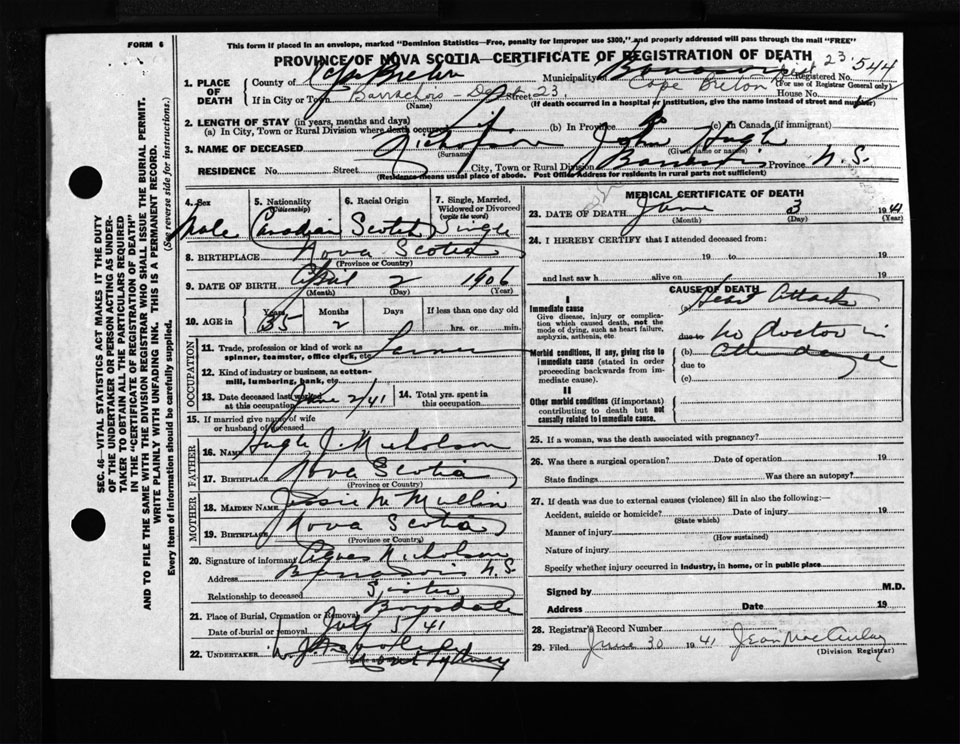 FORM 6
This form if placed in an envelope, marked "Dominion Statistics—Free, penalty for improper use $300," and properly addressed will pass through the mail "FREE"
PROVINCE OF NOVA SCOTIA—CERTIFICATE OF REGISTRATION OF DEATH
SEC. 46—VITAL STATISTICS ACT MAKES IT THE DUTY
OF THE UNDERTAKER OR PERSON ACTING AS UNDER-
TAKER TO OBTAIN ALL THE PARTICULARS REQUIRED
IN THE "CERTIFICATE OF REGISTRATION OF DEATH"
AND TO FILE THE SAME WITH THE DIVISION REGISTRAR WHO SHALL ISSUE THE BURIAL PERMIT.
WRITE PLAINLY WITH UNFADING INK. THIS IS A PERMANENT RECORD.
Every item of information should be carefully supplied. (See reverse side for instructions.)
1. PLACE OF DEATH
County of Cape Breton Municipality of Registered No. 544
Dist 23
(For use of Registrar General only)
If in City or Town Barrachois - Dist 23 Street Cape Breton House No.
(Name) (If death occurred in a hospital or institution, give the name instead of street and number)
2. LENGTH OF STAY (in years, months and days)
(a) In City, Town or Rural Division where death occurred (b) In Province (c) In Canada (if immigrant)
3. NAME OF DECEASED Nicholson John Hugh
(Surname) (Given name or names)
RESIDENCE No. Street City, Town or Rural Division Province N.S.
(Residence means usual place of abode. Post Office Address for residents in rural parts not sufficient)
4. Sex Male
5. Nationality (Citizenship) Canadian
6. Racial Origin Scotch
7. Single, Married, Widowed or Divorced (write the word) Single
8. BIRTHPLACE Nova Scotia
(Province or Country)
9. DATE OF BIRTH April 2 1906
(Month) (Day) (Year)
10. AGE in Years 35 Months 2 Days If less than one day old hrs. or min.
OCCUPATION
11. Trade, profession or kind of work as spinner, teamster, office clerk, etc. Farmer
12. Kind of industry or business, as cotton-mill, lumbering, bank, etc.
13. Date deceased last worked at this occupation June 2/41
14. Total yrs. spent in this occupation
15. If married give name of wife or husband of deceased
FATHER
16. Name Hugh J. Nicholson
17. Birthplace Nova Scotia
(Province or Country)
MOTHER
18. Maiden Name Jessie McMullin
19. Birthplace Nova Scotia
(Province or Country)
20. Signature of informant Agnes Nicholson
Address N.S.
Relationship to deceased Sister
21. Place of Burial, Cremation or Removal Boisdale
Date of burial or removal July 5/41
22. UNDERTAKER
North Sydney
MEDICAL CERTIFICATE OF DEATH
23. DATE OF DEATH June 3 1941
(Month) (Day) (Year)
24. I HEREBY CERTIFY that I attended deceased from:
19 to 19
and last saw h alive on 19
CAUSE OF DEATH
I
Immediate cause
Give disease, injury or complication which caused death, not the mode of dying, such as heart failure, asphyxia, asthenia, etc.
(a) Heart Attack
due to No doctor in
Morbid conditions, if any, giving rise to immediate cause (stated in order proceeding backwards from immediate cause).
(b) attendance
due to
(c)
II
Other morbid conditions (if important) contributing to death but not causally related to immediate cause.
25. If a woman, was the death associated with pregnancy?
26. Was there a surgical operation? Date of operation 19
State findings Was there an autopsy?
27. If death was due to external causes (violence) fill in also the following:—
Accident, suicide or homicide? Date of injury 19
(State which)
Manner of injury
(How sustained)
Nature of injury
Specify whether injury occurred in industry, in home, or in public place
Signed by M.D.
Address Date 19
28. Registrar's Record Number
29. Filed June 30 1941 Jean MacAulay
(Division Registrar)